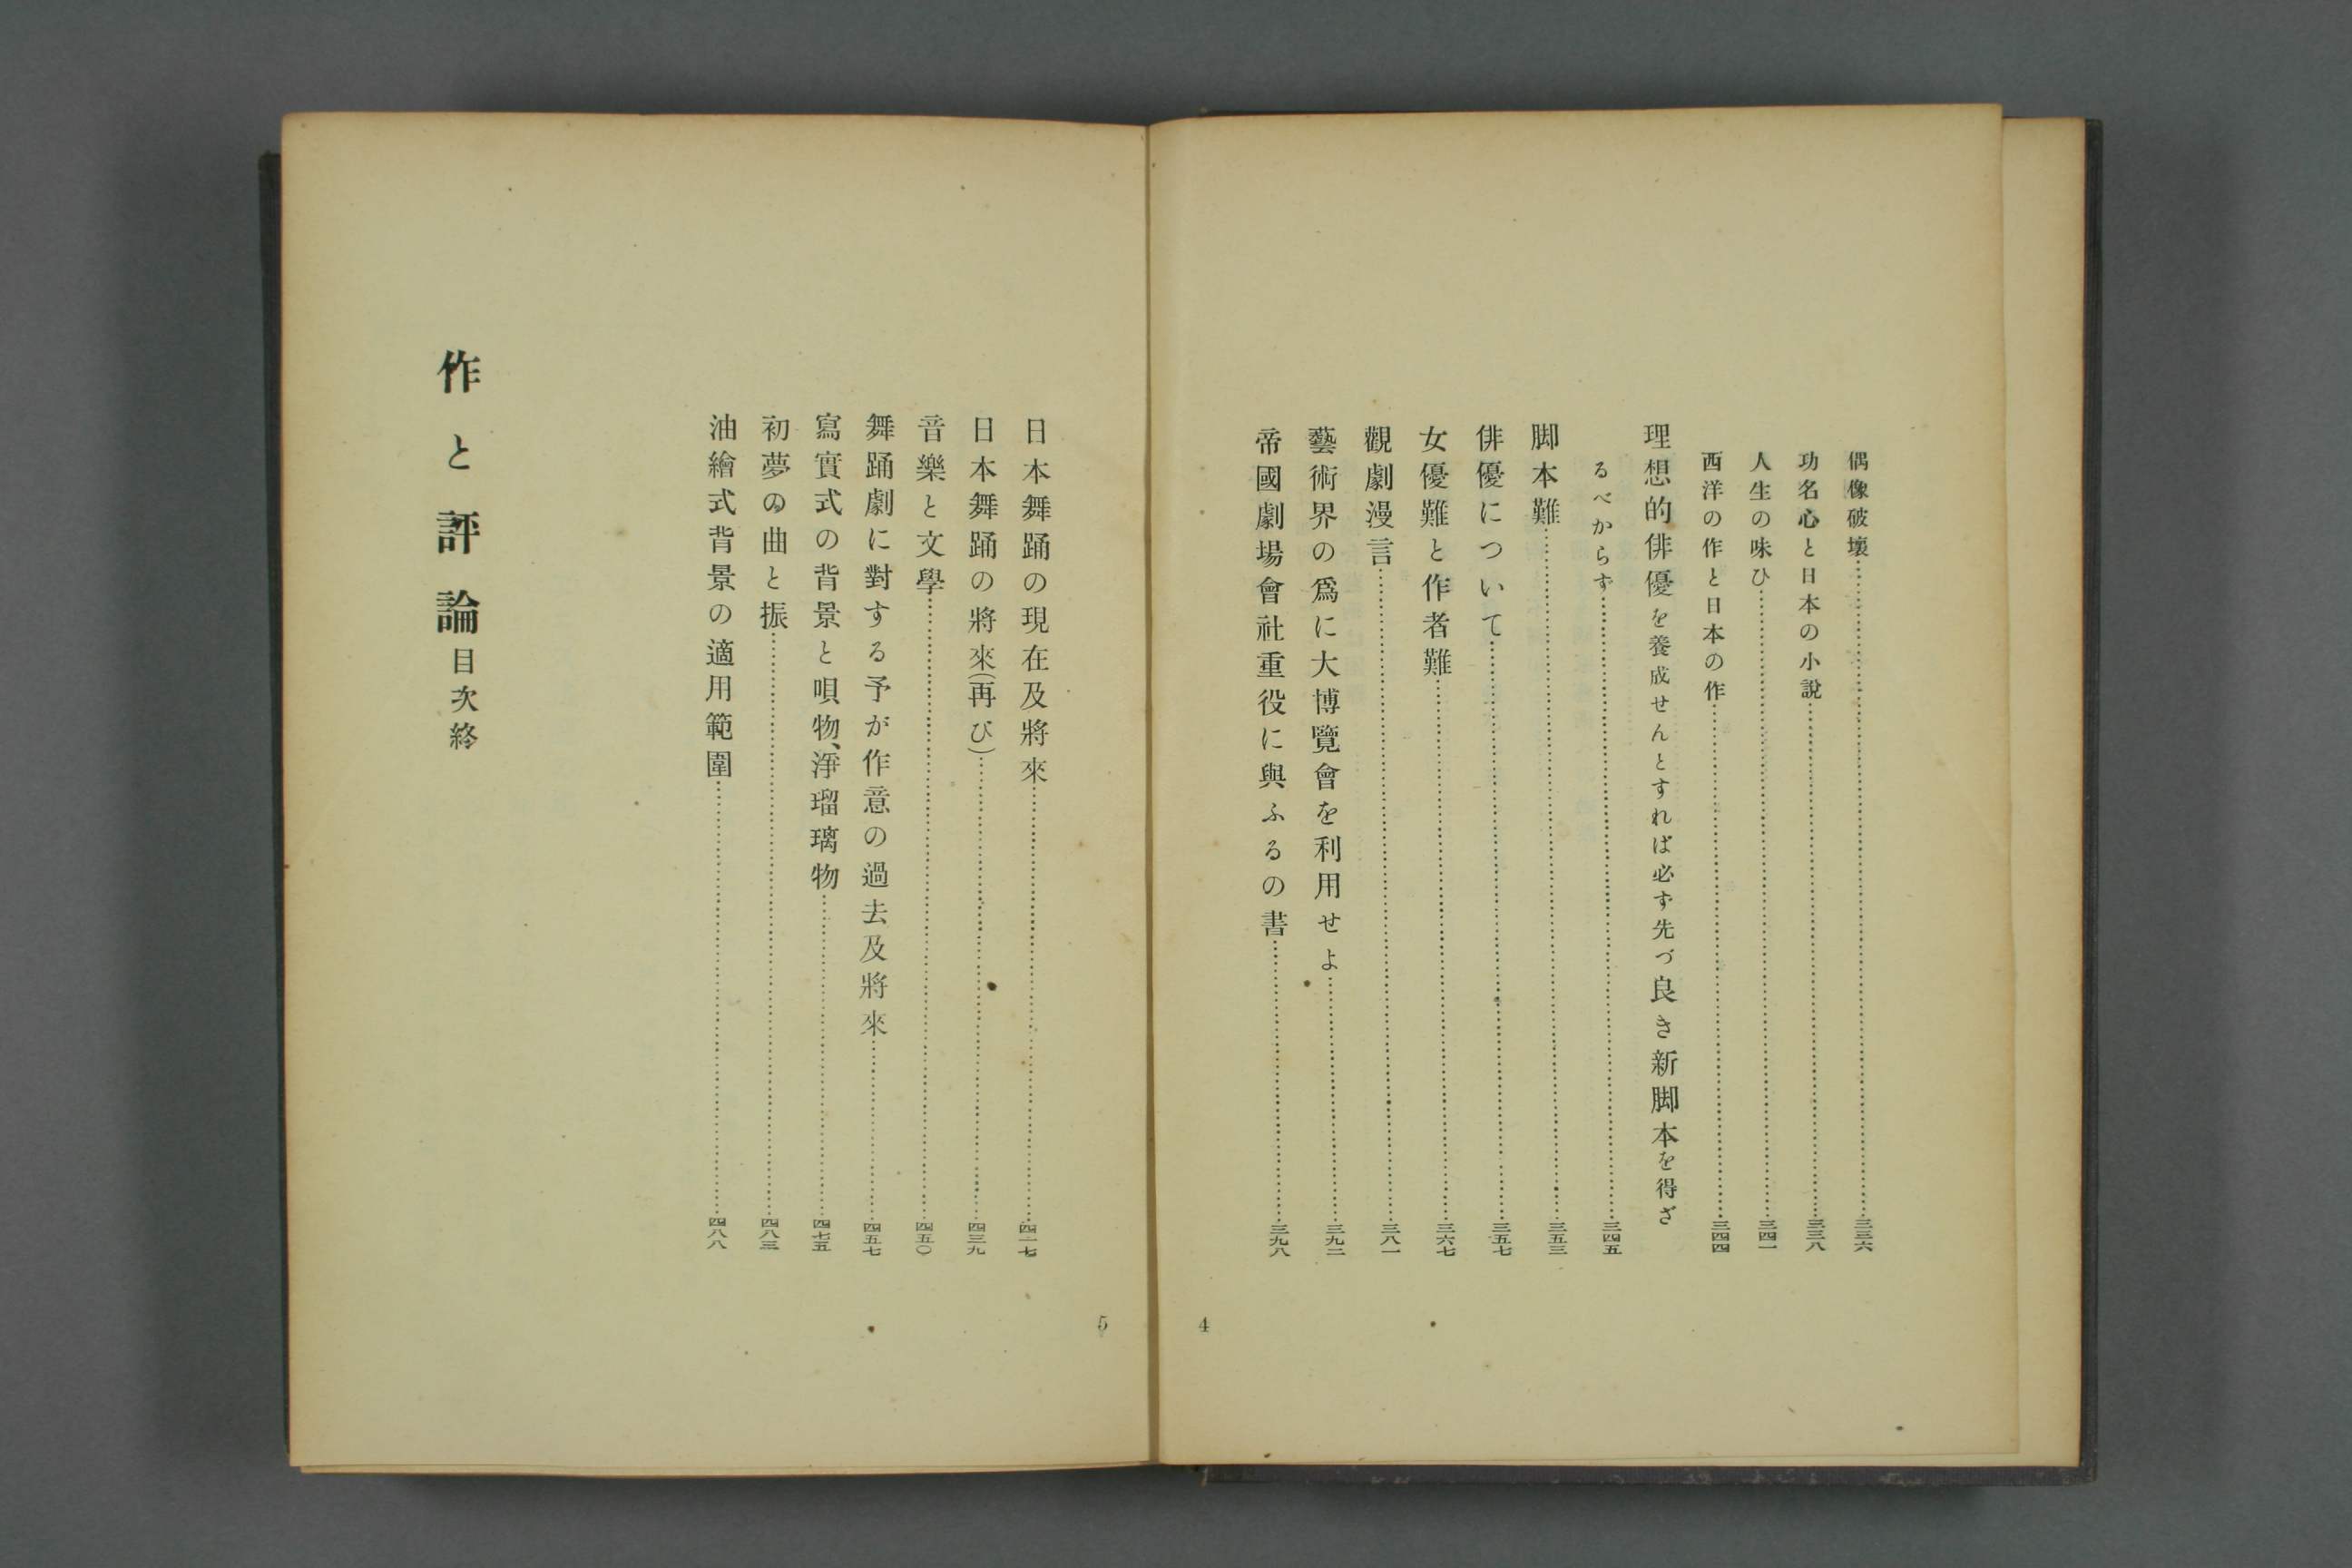 偶像破壞……三三六
功名心と日本の小說……三三八
人生の味ひ……三四一
西洋の作と日本の作……三四四
理想的俳優を養成せんとすれば必ず先づ良き新脚本を得ざ
るべからず……三四五
脚本難……三五三
俳優について……三五七
女優難と作者難……三六七
觀劇漫言……三八一
藝術界の爲に大博覽會を利用せよ……三九二
帝國劇場會社重役に與ふるの書……三九八
4
日本舞踊の現在及將來……四一七
日本舞踊の將來(再び)……四三九
音樂と文學……四五〇
舞踊劇に對する予が作意の過去及將來……四五七
寫實式の背景と唄物、淨瑠璃物……四七五
初夢の曲と振……四八三
油繪式背景の適用範圍……四八八
作と評論目次終
5